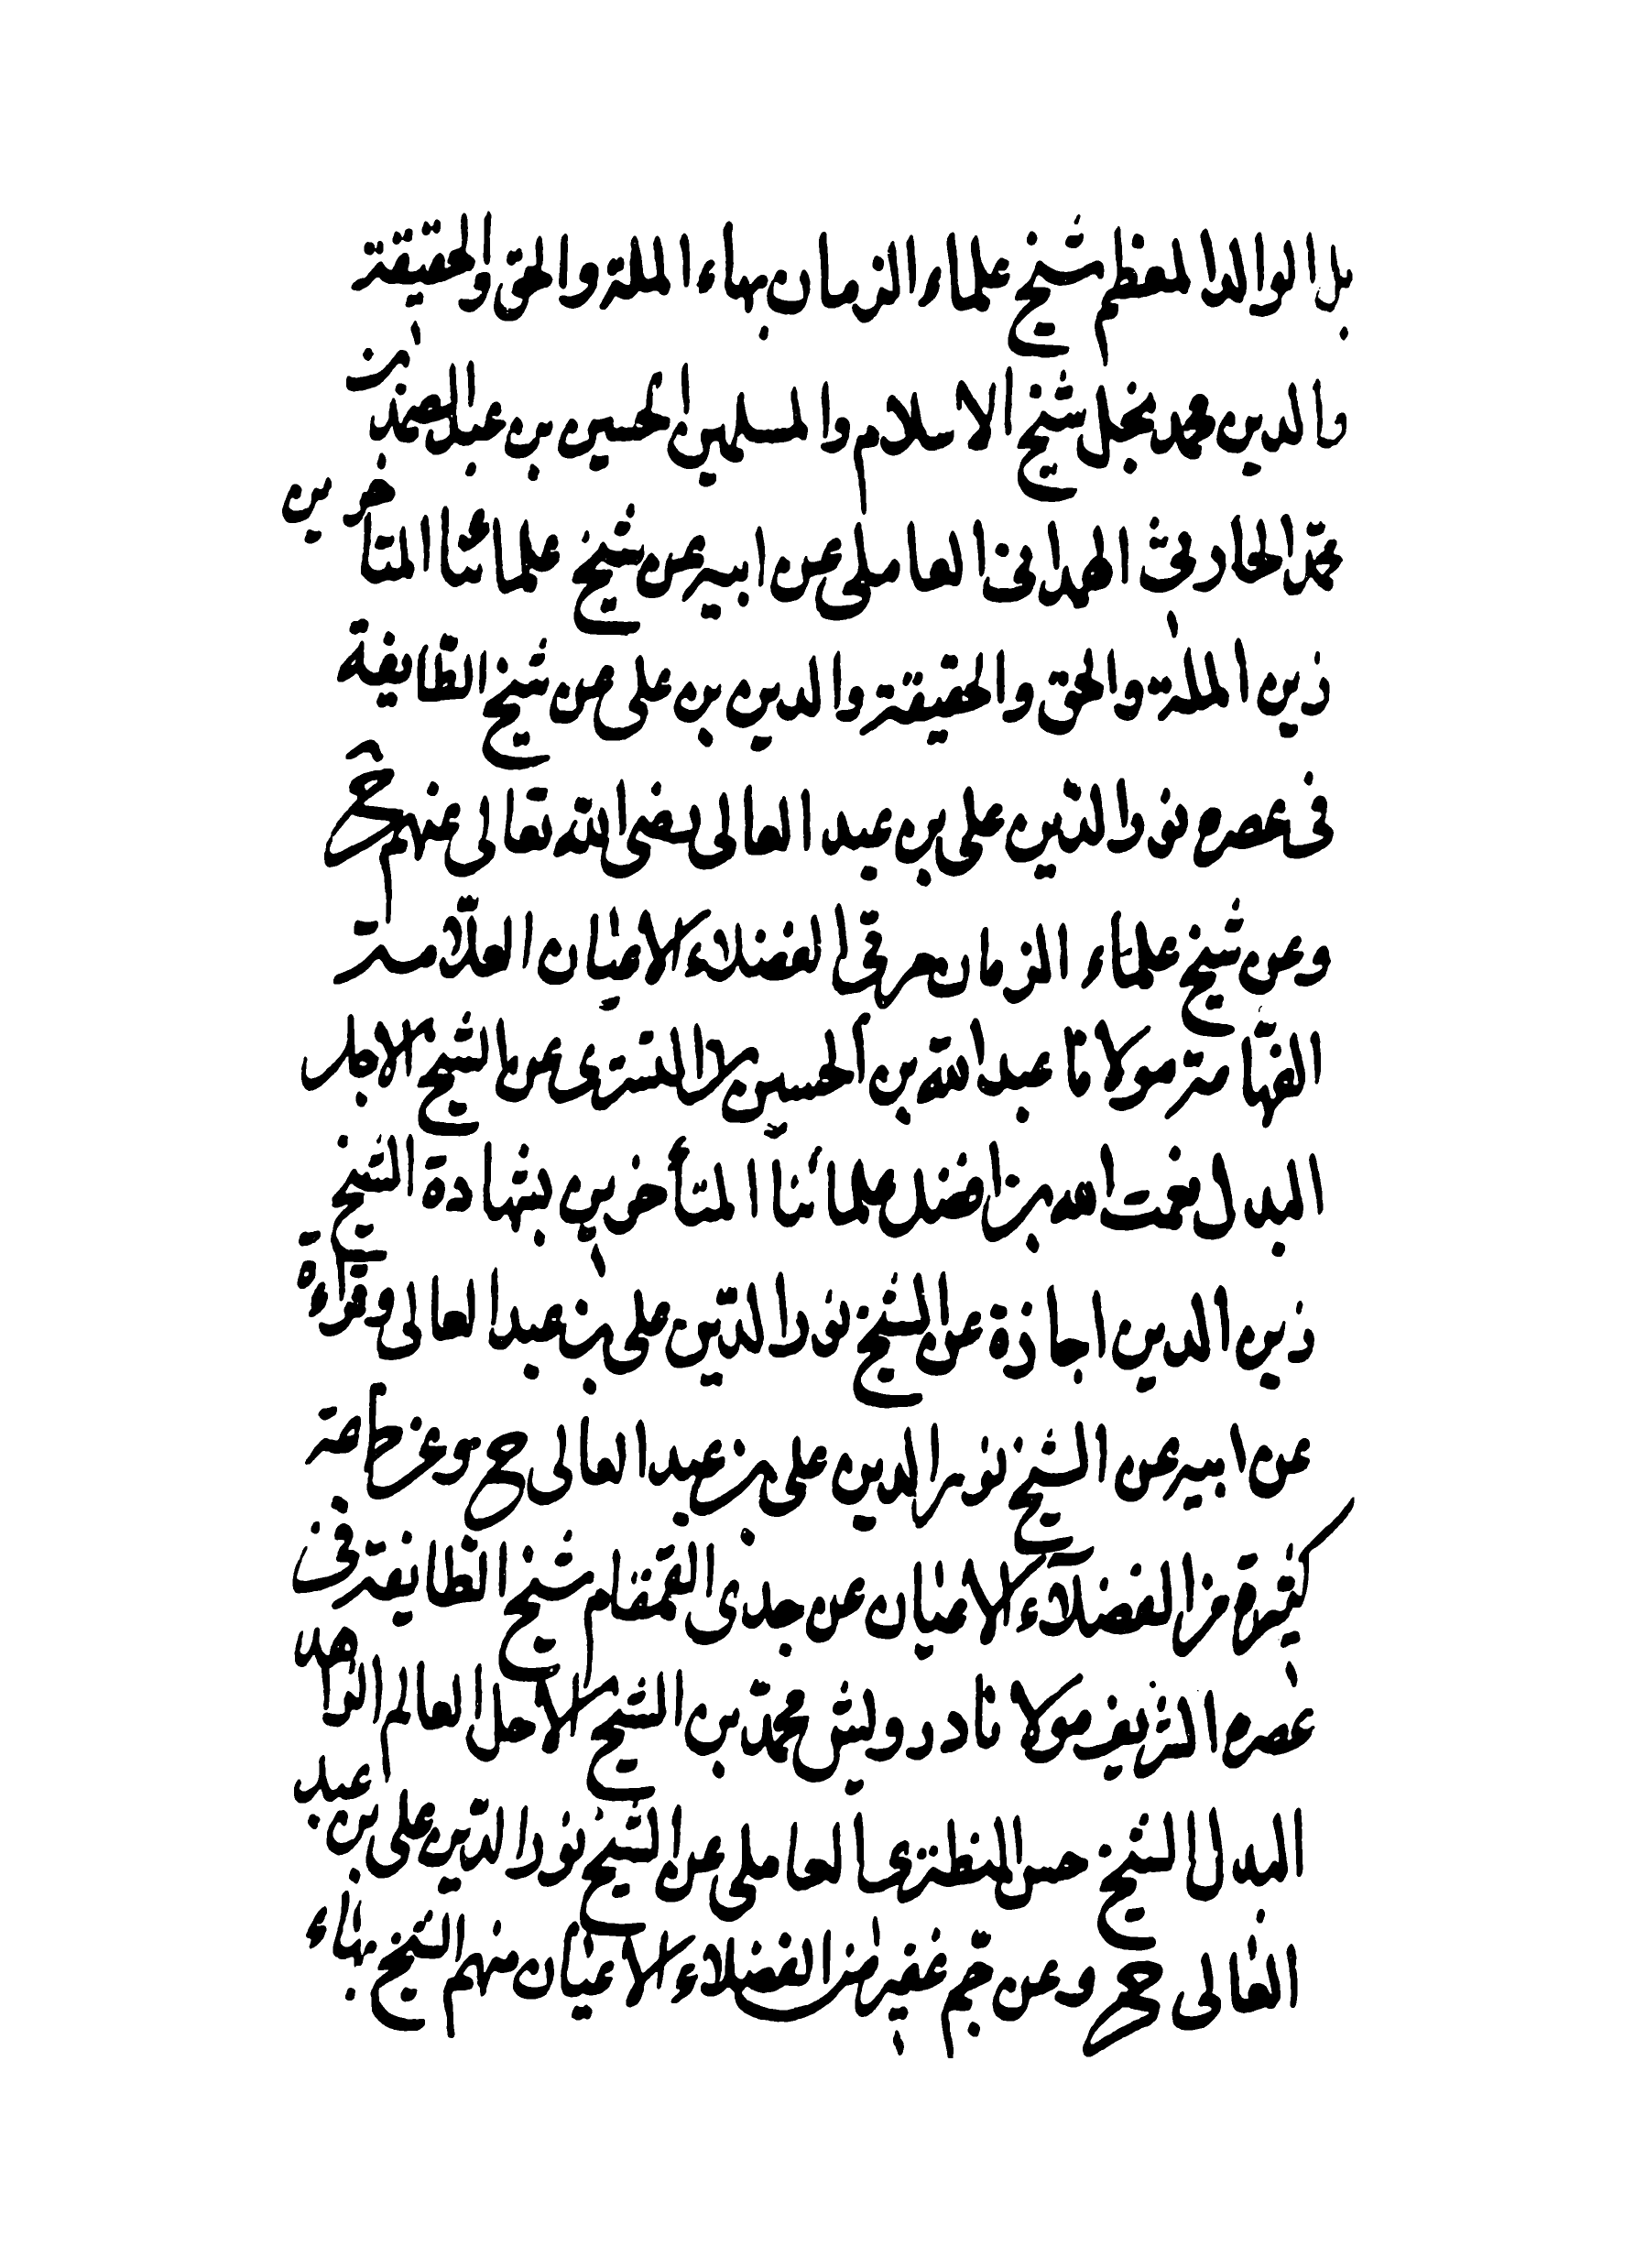 بل الوالد المعظم شيخ علماء الزمان بهاء الملة والحق والحقيقة
والدين محمد نجل شيخ الاسلام والمسلمين الحسين بن عبد الصمد بن
محمّد الحارثى الهمدانى العاملى عن ابيه عن شيخ علمائنا المتاخرين
زين الملة والحق والحقيقة والدين بن على عن شيخ الطايفة
فى عصره نور الدّين على بن عبد العالى رضى الله تعالى عنهم ح
وعن شيخ علماء الزمان مربى الفضلاء الاعيان العلّامة
الفهّامة مولانا عبد الله بن الحسين التسترى عن الشيخ الاجل
البدل نعمت الله من افضل علمائنا المتأخرين بشهادة الشيخ
زين الدين اجازة عن الشيخ نور الدّين على بن عبد العالى وقراءة
عن ابيه عن الشيخ نور الدين على بن عبد العالى ح وعن جماعة
كثيرة من الفضلاء الاعيان عن جدى القمقام شيخ الطايفة فى
عصره الشريف مولانا درويش محمّد بن الشيخ الاجل العالم الزاهد
البدل الشيخ حسن النطنزى العاملى عن الشيخ نور الدّين على بن عبد
العالى ح وعن جم غفير من الفضلاء الاعيان منهم الشيخ بهاء